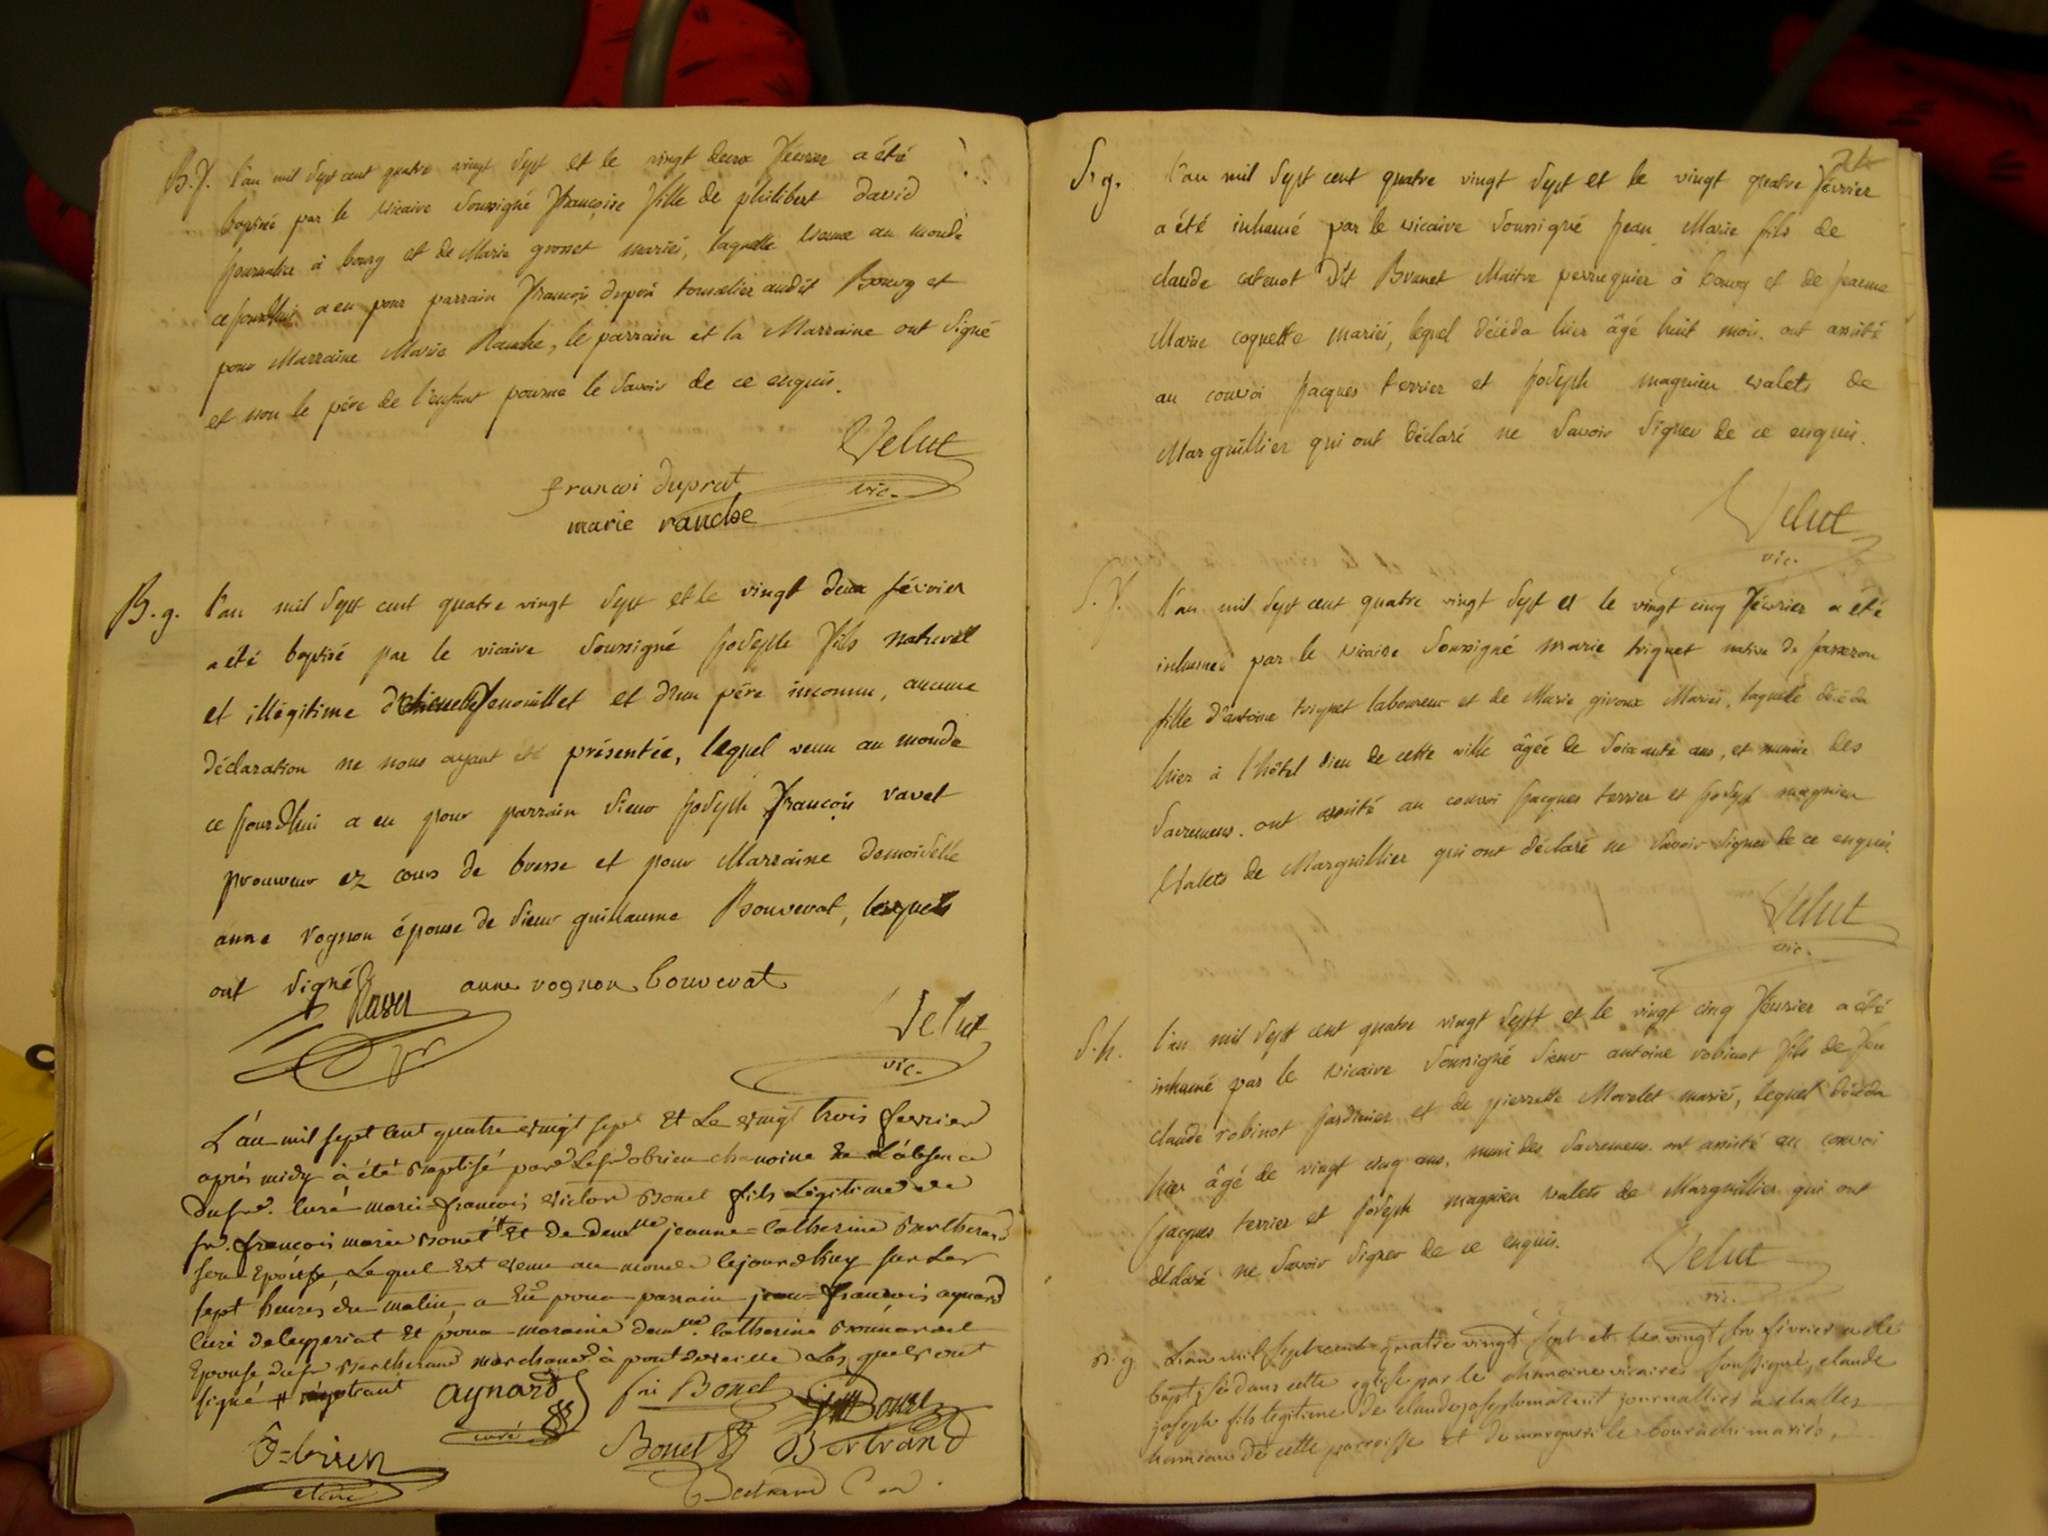 B.f. l'an mil Sept cent quatre vingt Sept et le vingt deux février a été
baptisé par le vicaire Soussigné françoise fille de philibert david
journalier à bourg et de Marie grosset mariés, laquelle venue au monde
ce jourdhui a eu pour parrain françois duprat tonnelier audit Bourg et
pour Marraine Marie Ranche, le parrain et la Marraine ont Signé
et non le père de l'enfant pour ne le Savoir de ce enquis.
Velut
vic.
francoi duprat
marie ranche
B.g. l'an mil Sept cent quatre vingt Sept et le vingt deux février
a été baptisé par le vicaire Soussigné joseph fils naturel
et illégitime fenouillet et d'un père inconnu, aucune
déclaration ne nous ayant été présentée, lequel venu au monde
ce jourdhui a eu pour parrain Sieur joseph françois ravet
procureur ez cours de bresse et pour Marraine demoiselle
anne vognon épouse de Sieur guillaume Bouveret, lesquels
ont Signé
Ravet anne vognon bouverat
Velut
vic.
L'an mil sept cent quatre vingt sept Et Le vingt trois fevrier
aprés midy à été Baptisé par Le sr obrien chanoine En L'absence
du sr. Curé marie=françois victor Bonet fils Légitime de
sr. françois marie Bonet # Et de demlle jeanne=Catherine Bertherand
son Epouse, Lequel Est venu au monde Cejourdhuy sur Les
sept heures du matin, a Eü pour parrain jean=francois aynard
Curé de leyzeriat Et pour maraine demlle. Catherine
Epouse du sr Bertherand marchand à pont de veille Les quels ont
signé #
aynard fri Bonet
curé
O=brien Bonet Bertrand
Bertrand
24
S.g. l'an mil Sept cent quatre vingt Sept et le vingt quatre février
a été inhumé par le vicaire Soussigné jean Marie fils de
claude catenot dit Brunet Maitre perruquier à bourg et de jeanne
Marie coquette mariés, lequel décéda hier âgé huit mois. ont assisté
au convoi jacques terrier et joseph magnien valets de
Marguillier qui ont déclaré ne Savoir Signer de ce enquis.
Velut
vic.
S.f. l'an mil Sept cent quatre vingt Sept et le vingt cinq février a été
inhumée par le vicaire Soussigné marie triquet native de jasseron
fille d'antoine triquet laboureur et de Marie giroux Mariés, laquelle décéda
hier à l'hôtel dieu de cette ville âgée de Soixante ans, et munie des
Sacremens. ont assisté au convoi jacques terrier et joseph magnien
Valets de Marguillier qui ont déclaré ne Savoir Signer de ce enquis.
Velut
vic.
S.h. l'an mil Sept cent quatre vingt Sept et le vingt cinq février a été
inhumé par le vicaire Soussigné Sieur antoine robinot fils de feu
claude robinot jardinier et de pierrette Morelet mariés, lequel décéda
hier âgé de vingt cinq ans, muni des Sacremens. ont assisté au convoi
jacques terrier et joseph magnien valets de Marguillier qui ont
déclaré ne Savoir Signer de ce enquis.
Velut
vic.
B.g. L'an mil sept cent quatre vingt sept et le vingt février a été
baptisé dans cette eglise par le chanoine vicaire soussigné, claude
joseph fils legitime de claude joseph journallier à challes
hameau de cette parroisse et de marguerite mariés,